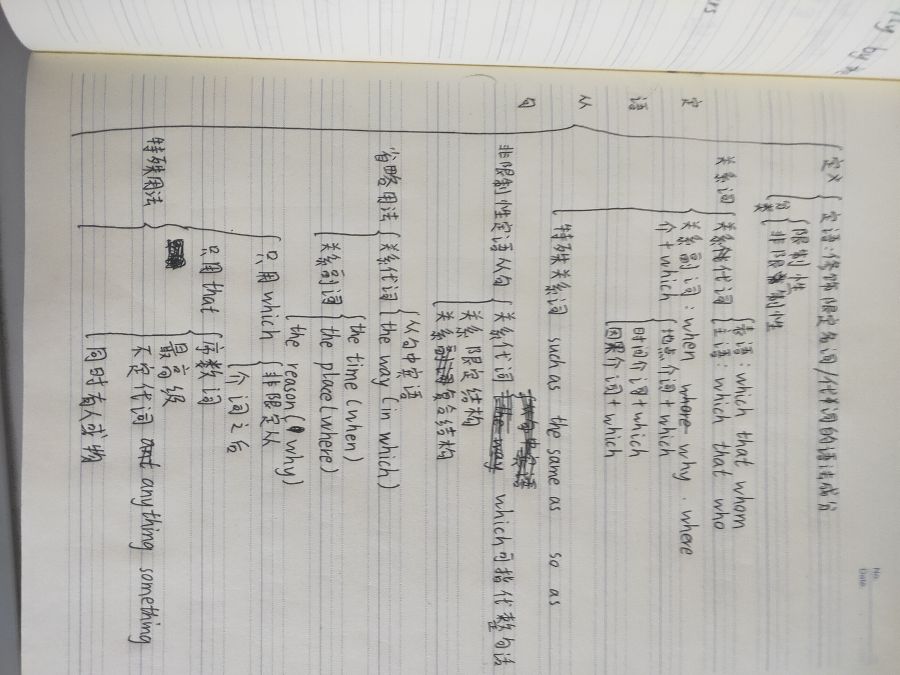 定语从句
定义
定语:修饰限定名词/代词的语法成分
分类
限制性
非限制性
关系词
关系代词
宾语:which that whom
主语:which that who
关系副词:when where why . where
介+which
地点介词+which
时间介词+which
因果介词+which
特殊关系词 such as the same as so as
非限制性定语从句
关系代词 which可指代整句话
关系 限定结构
关系 复合结构
省略用法
关系代词
从句中宾语
the way (in which)
关系副词
the time (when)
the place (where)
the reason (why)
特殊用法
只用which
非限定从
介词之后
只用that
序数词
最高级
不定代词 anything something
同时有人或物
No.
Date